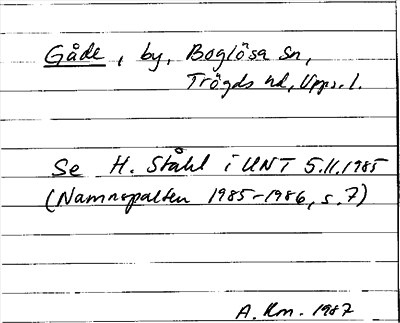 Gåde, by, Boglösa sn,
Trögds hd, Upps.l.
Se H. Ståhl i UNT 5.11.1985
(Namnspalten 1985-1986, s. 7)
A. Rm. 1987